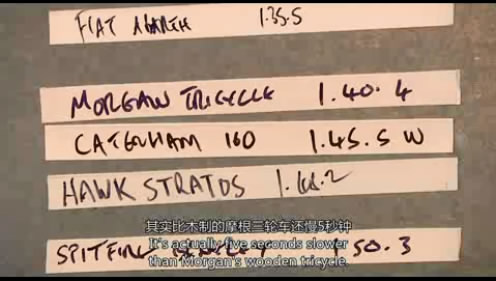 FIAT ABARTH 1.35.5
MORGAN TRICYCLE 1.40.4
CATERHAM 160 1.45.5 W
HAWK STRATOS
其实比木制的摩根三轮车还慢5秒钟
It's actually five seconds slower
than Morgan's wooden tricycle.
SPITFIRE 50.3